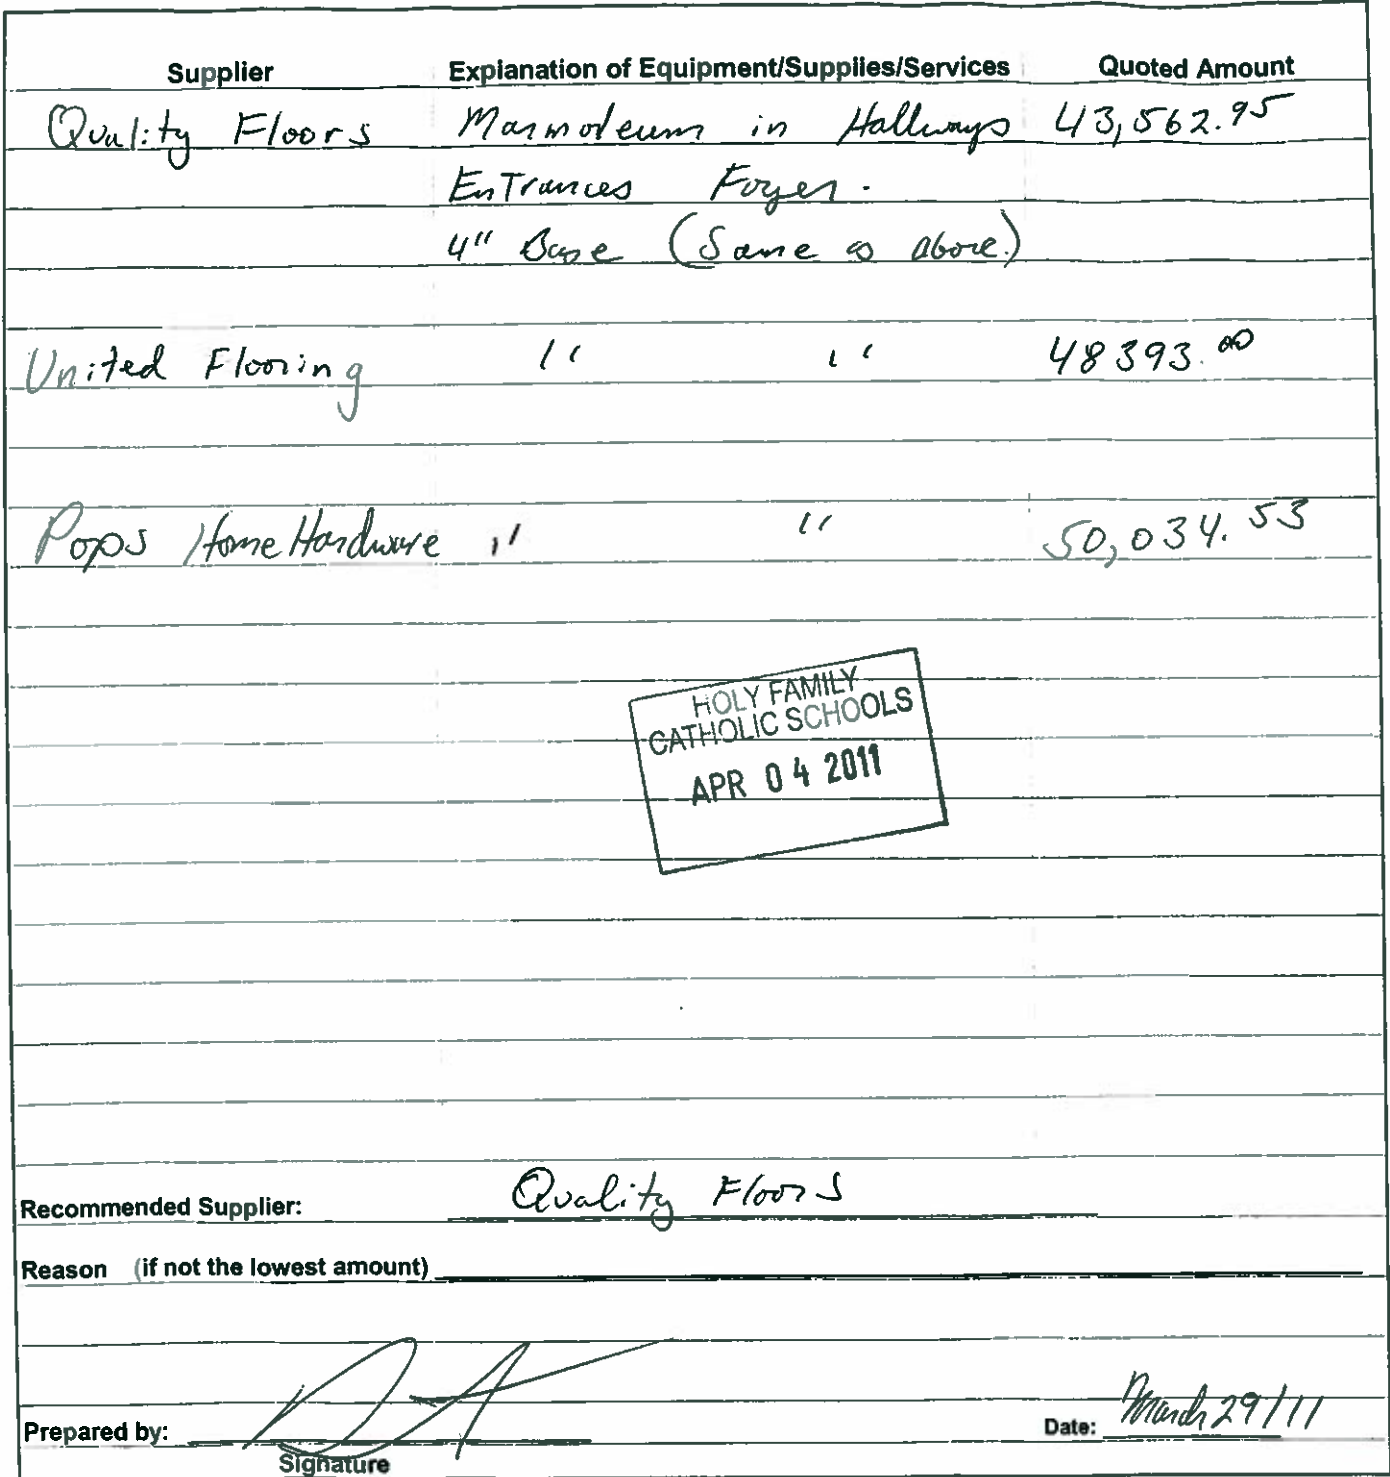 Supplier Explanation of Equipment/Supplies/Services Quoted Amount
Quality Floors Marmoleum in Hallways 43,562.95
EnTrances Foyer.
4" Base (Same as above.)
United Flooring " " 48393.00
Pops Home Hardware " " 50,034.53
HOLY FAMILY
CATHOLIC SCHOOLS
APR 04 2011
Recommended Supplier: Quality Floors
Reason (if not the lowest amount)
Prepared by: Date: March 29/11
Signature